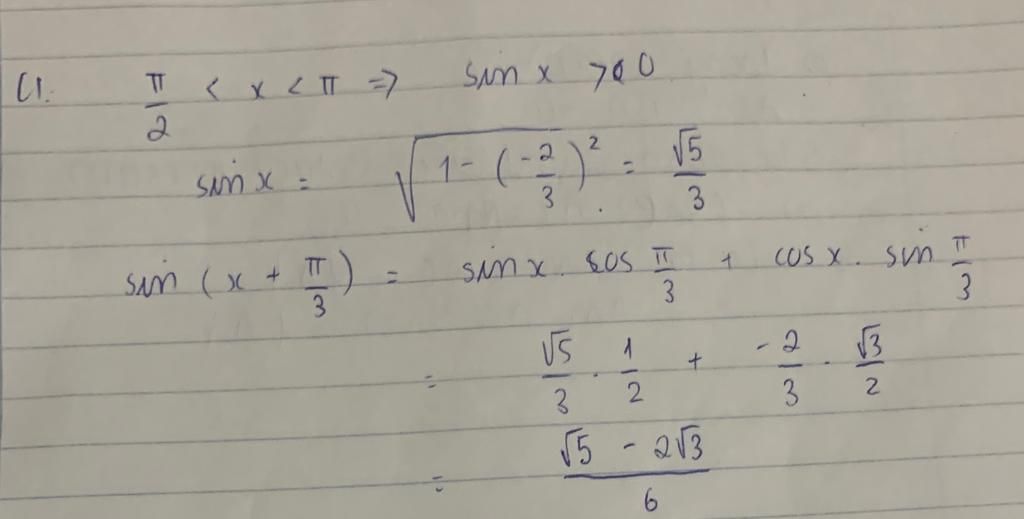 C1. π/2 < x < π => sin x > 0
sin x = √(1 - (-2/3)²) = √5/3
sin (x + π/3) = sin x . cos π/3 + cos x . sin π/3
= √5/3 . 1/2 + -2/3 . √3/2
= (√5 - 2√3)/6